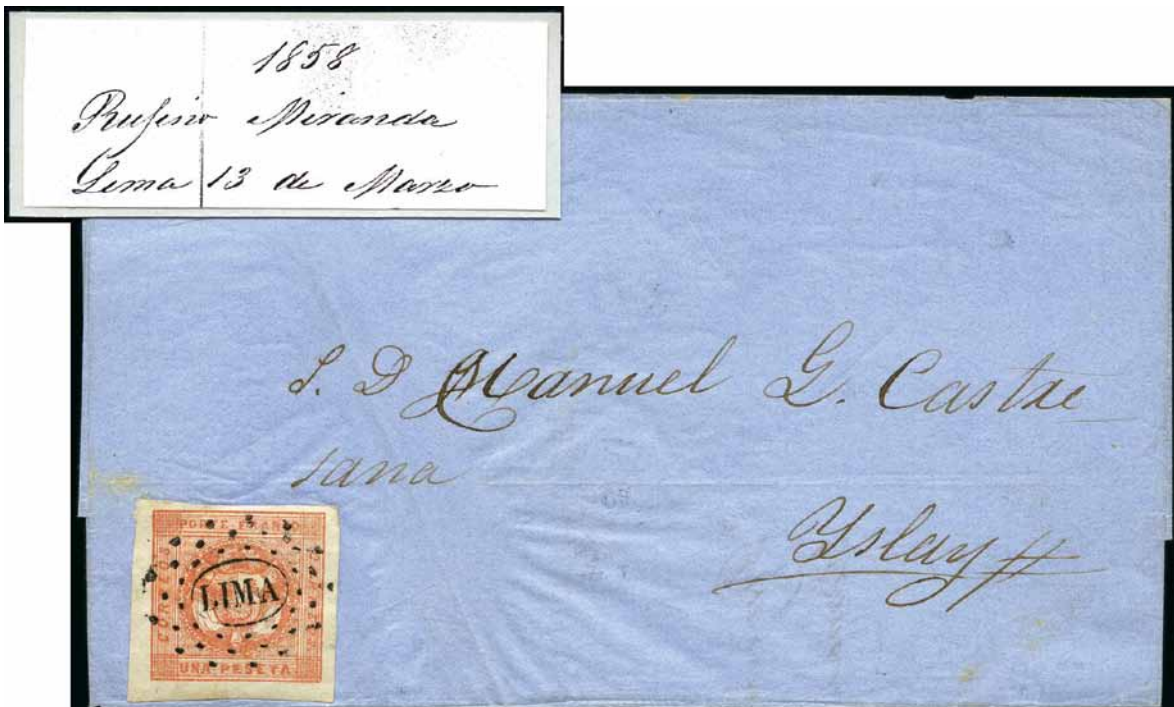 1858
Rufino Miranda
Lima 13 de Marzo
S. D Manuel G. Castre
sana
Yslay
PORTE FRANCO
CORREOS
LIMA
UNA PESETA